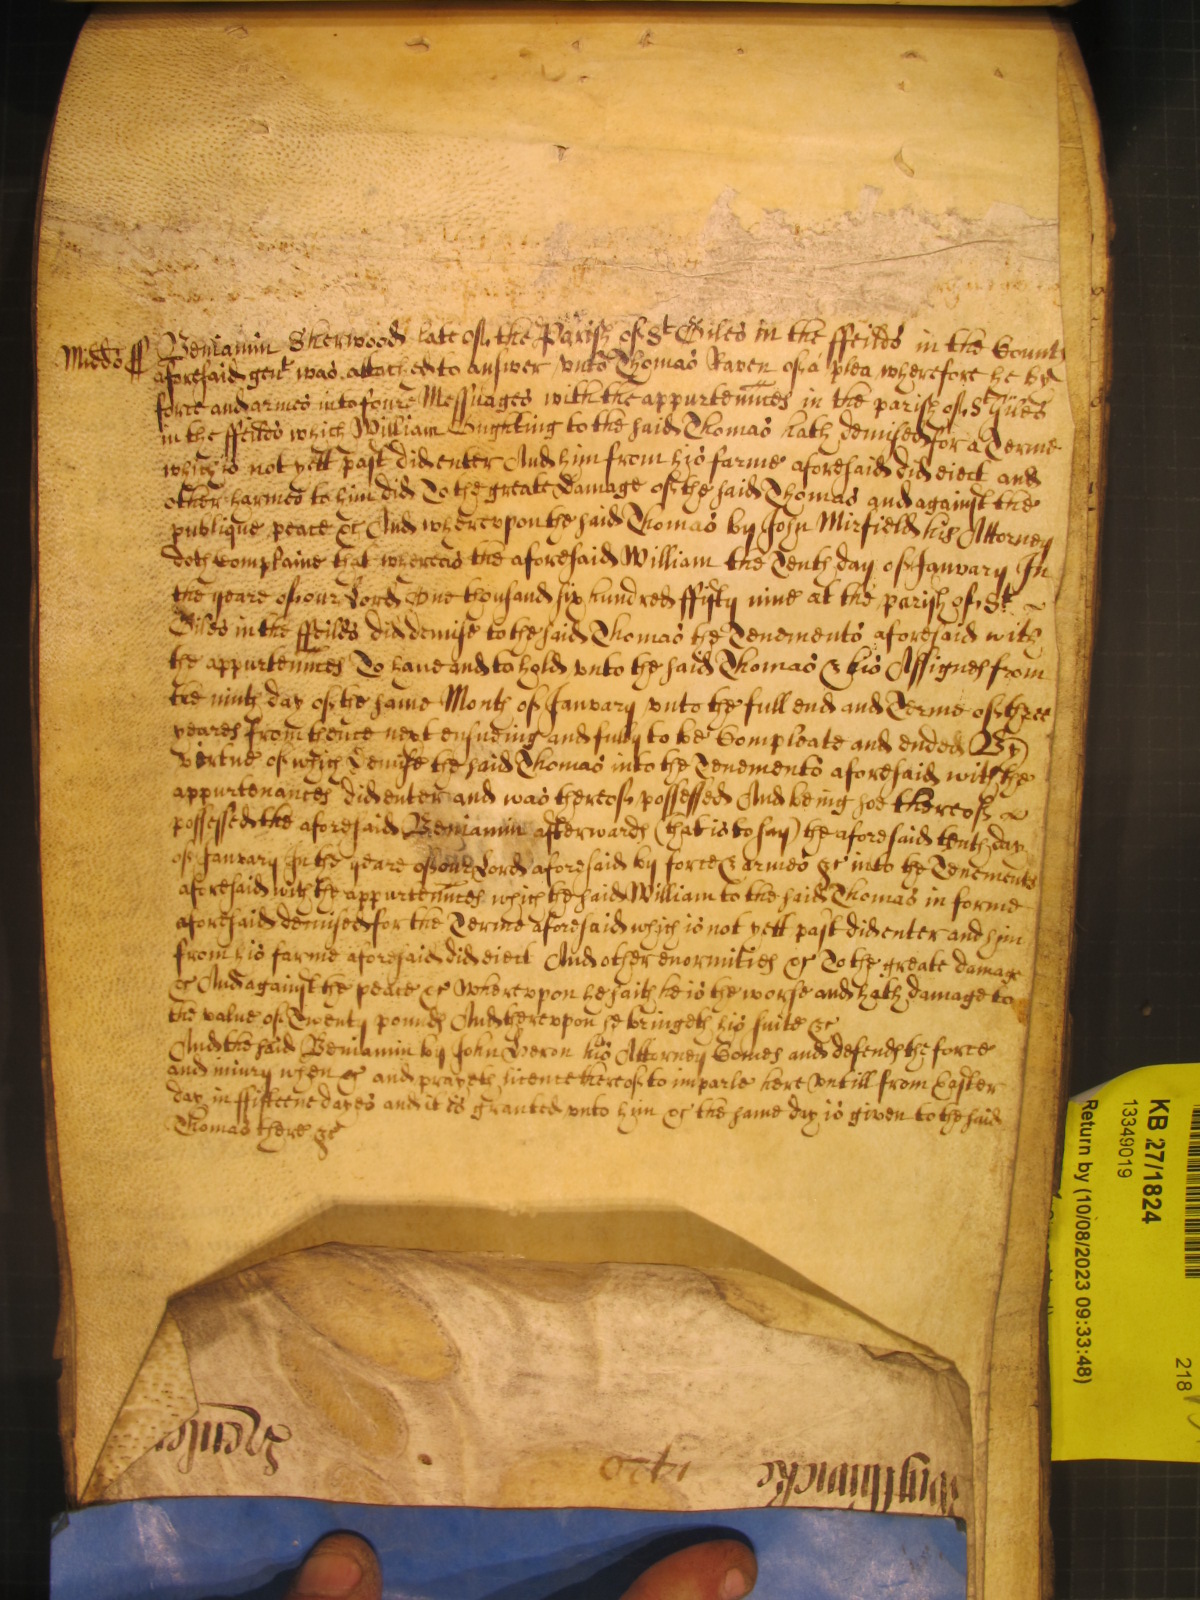 Midds ss Beniamin Sherwood late of the Parish of St Giles in the ffeilds in the County
aforesaid gent was attached to answer unto Thomas Raven of a plea wherefore he by
force and armes into foure Messuages with the appurtennces in the parish of St Giles
in the ffeilds which William to the said Thomas hath demised for a Terme
which is not yett past did enter And him from his farme aforesaid did eiect and
other harmes to him did To the great damage of the said Thomas and against the
publique peace &c And wherevpon the said Thomas by John Mirfield his Attorney
doth complaine that whereas the aforesaid William the Tenth day of January In
the yeare of our Lord One thousand six hundred ffifty nine at the parish of St
Giles in the ffeilds did demise to the said Thomas the Tenements aforesaid with
the appurtennces To have and to hold vnto the said Thomas & his Assignes from
the ninth day of the same Month of January vnto the full end and Terme of three
yeares from thence next ensueing and fully to be Compleate and ended By
virtue of which Demise the said Thomas into the Tenements aforesaid with the
appurtenances did enter and was thereof possessed And being soe thereof
possessed the aforesaid Beniamin afterwards (that is to say) the aforesaid tenth day
of January In the yeare of our Lord aforesaid by force & armes &c into the Tenements
aforesaid with the appurtennces which the said William to the said Thomas in forme
aforesaid demised for the Terme aforesaid which is not yett past did enter and him
from his farme aforesaid did eiect And other enormities &c To the great damage
&c And against the peace &c Wherevpon he saith he is the worse and hath damage to
the value of Twenty pounds And therevpon he bringeth his suite &c
And the said Beniamin by John Heron his Attorney Comes and defends the force
and iniury when &c and prayeth licence thereof to imparle here vntill from Easter
day in ffifteene dayes and it is granted vnto him &c the same day is given to the said
Thomas there &c
1420
Wythwicke
KB 27/1824
13349019
Return by (10/08/2023 09:33:48)
218